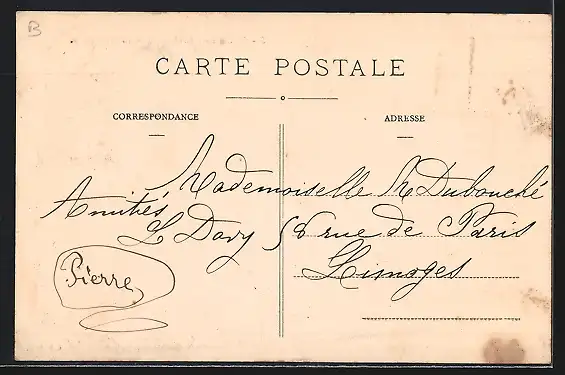 B
CARTE POSTALE
CORRESPONDANCE
ADRESSE
Mademoiselle R Dubouché
Amitiés
L Davy 58 rue de Paris
Limoges
Pierre